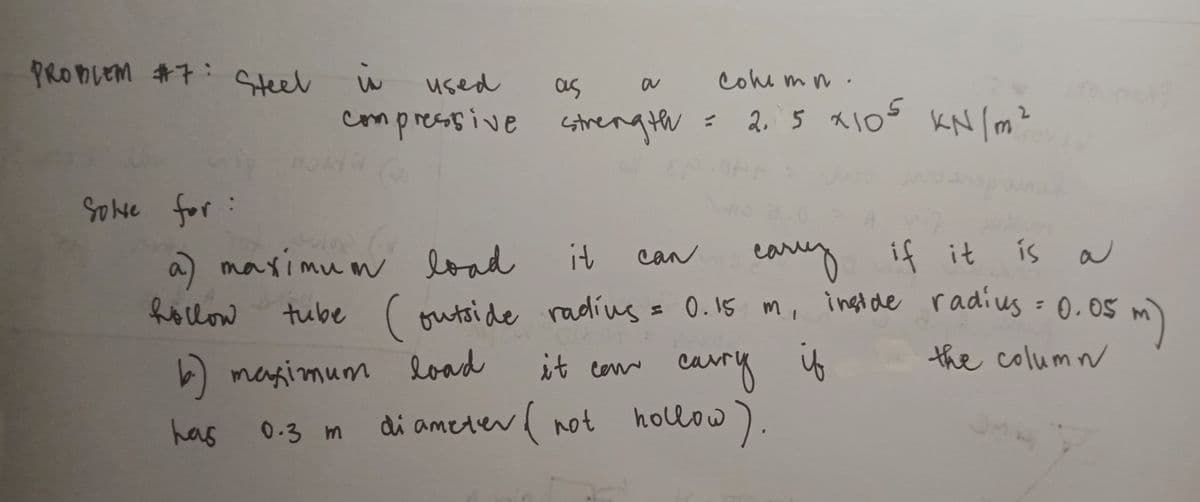 PROBLEM #7: Steel is used as a column.
compressive strength = 2.5 x10⁵ KN/m²
Solve for:
a) maximum load it can carry if it is a
hollow tube (outside radius = 0.15 m, inside radius = 0.05 m)
b) maximum load it can carry if the column
has 0.3 m diameter (not hollow).